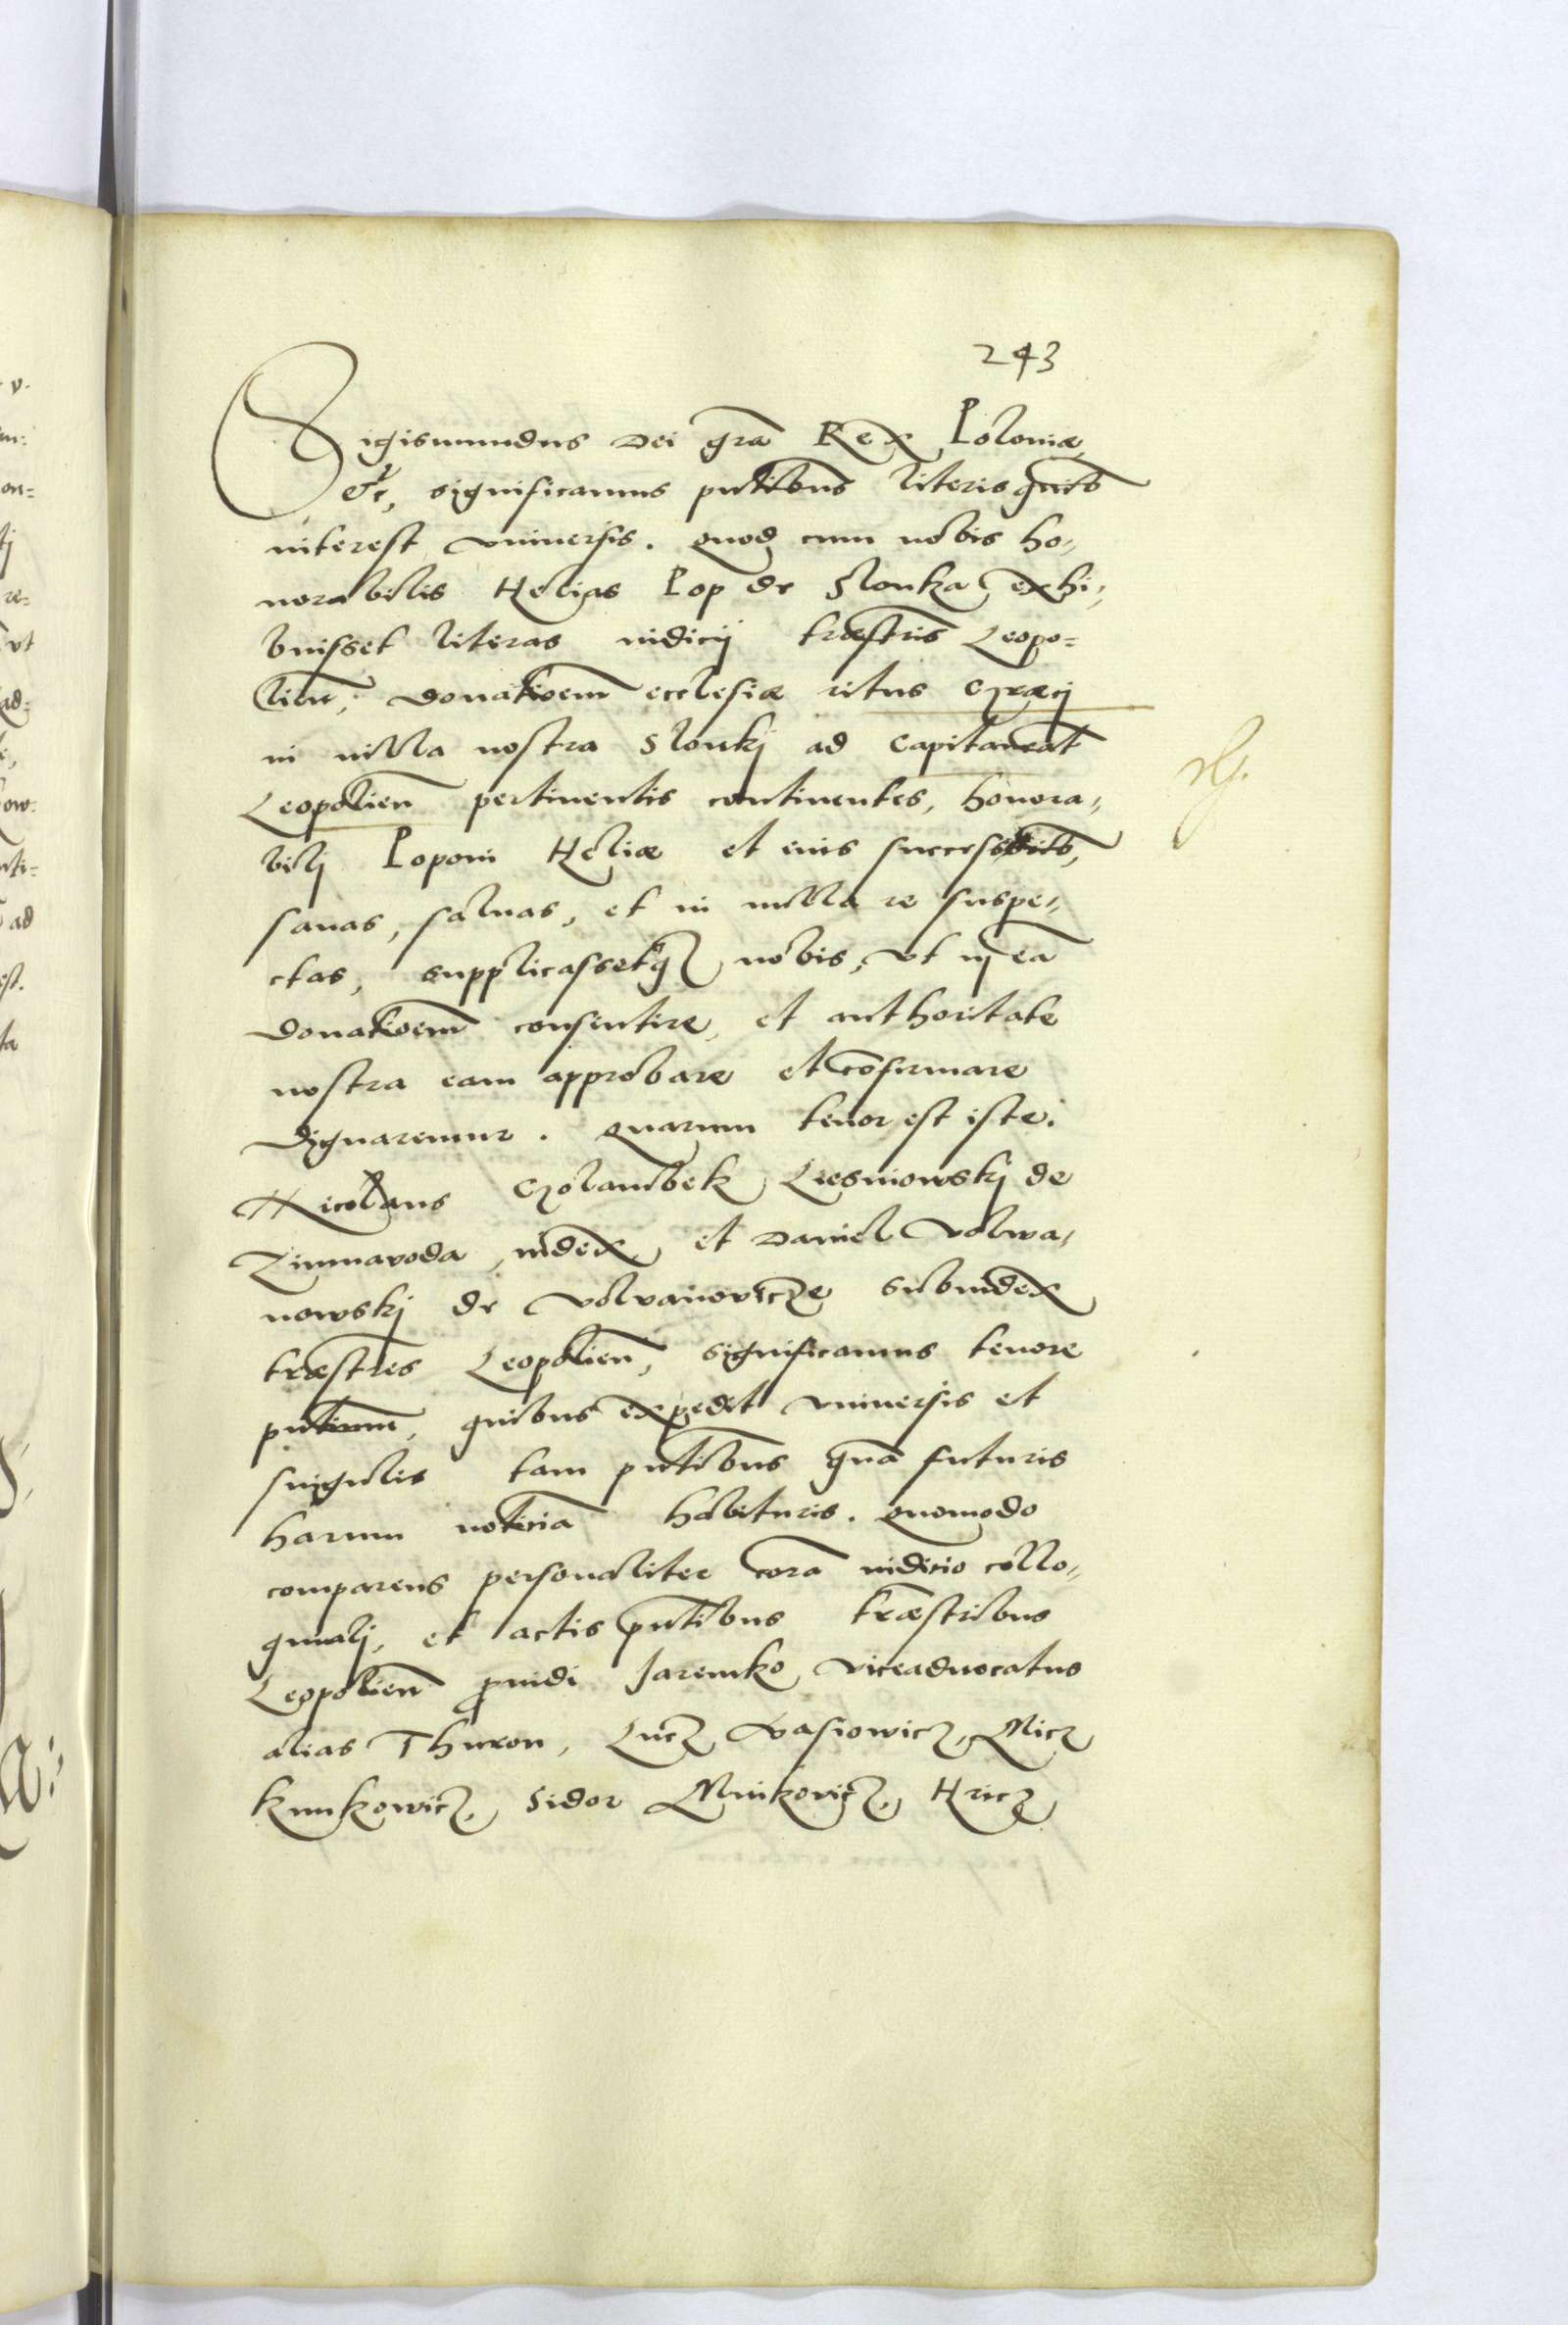 243
Sigismundus Dei gra͂ Rex Poloniæ
etc, significamus pntibus literis quib
interest vniuersis. Quod cum nobis ho=
norabilis Helias Pop de Slonka exhi=
buisset literas iudicij træstris Leopo=
lien, donatioem ecclesiæ ritus Græcj
in villa nostra Slonkj ad Capitaneat
Leopolien pertinentis continentes, honora=
bilj Poponi Heliæ et eius successorib,
sanas, saluas, et in nulla re suspe=
ctas, supplicassetq nobis, vt in ea͂
donatioem consentire, et authoritate
nostra eam approbare et co͂firmare
dignaremur. Quarum tenor est iste.
Nicolaus Golambek Liesniowskj de
Zimnavoda, iudex, et Daniel Volwa=
nowskj de Volvanovicze subiudex
træstres Leopolien, significamus tenore
pntium, quibus expedit vniuersis et
singulis tam pntibus qua͂ futuris
harum noticia͂ habituris. Quomodo
comparens personaliter cora͂ iudicio collo=
quialj, et actis pntibus træstribus
Leopolien prouidi Jaremko viceaduocatus
alias Thuron, Lucz Vasiowicz, Micz
Kunkowicz, Sidor Minkovicz, Hricz